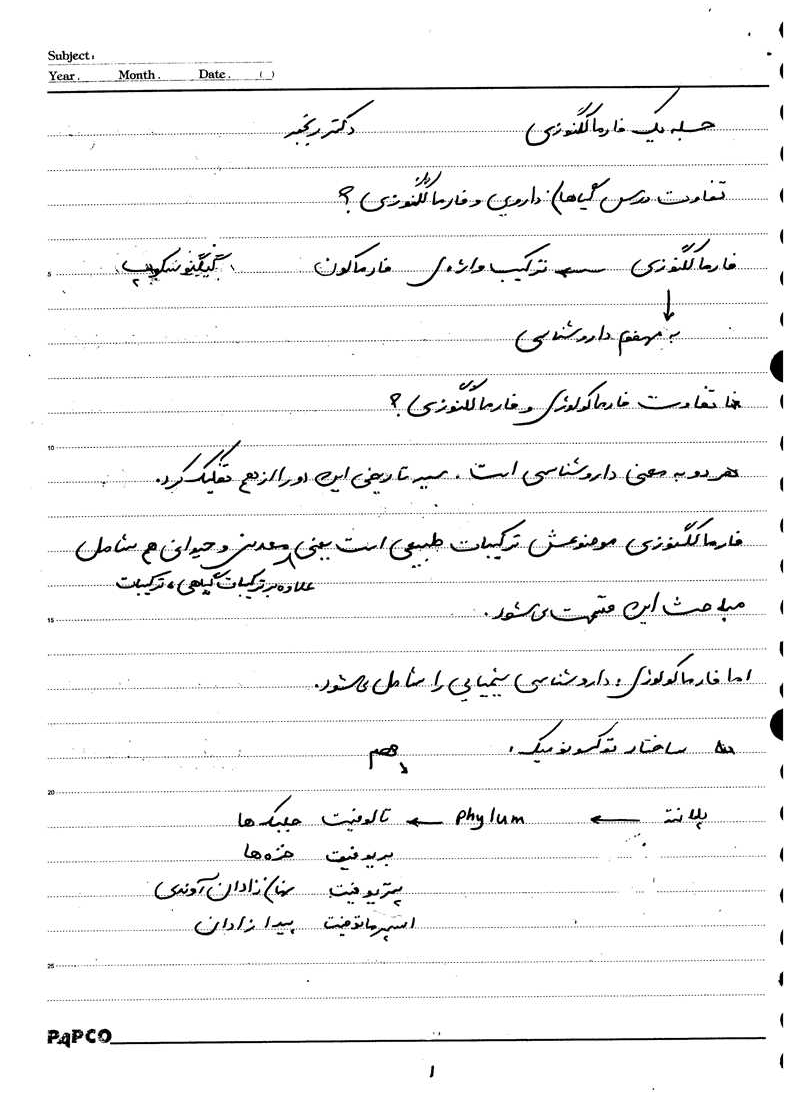 Subject:
Year. Month. Date. ( )
جلسه یک فارماکگنوزی دکتر رنجبر
تفاوت درس گیاهان دارویی و فارماکگنوزی ؟
5 فارماکگنوزی ← ترکیب واژه‌ی فارماکون
↓
به مهفوم داروشناسی
تفاوت فارماکولوژی و فارماکگنوزی ؟
10
هر دو به معنی داروشناسی است . سیر تاریخی این دو را از هم تفکیک کرد.
فارماکگنوزی موضوعش ترکیبات طبیعی است یعنی ۸ معدنی و حیوانی هم شامل
علاوه بر ترکیبات گیاهی ، ترکیبات
15 مباحث این قسمت می‌شود.
اما فارماکولوژی ، داروشناسی شیمیایی را شامل می‌شود.
ساختار توکسونومیک : مهم
20
پلانته ← Phylum ← تالوفیت جلبک ها
بریوفیت خزه ها
پتریوفیت نهان زادان آوندی
اسپرماتوفیت پیدا زادان
25
PAPCO
1